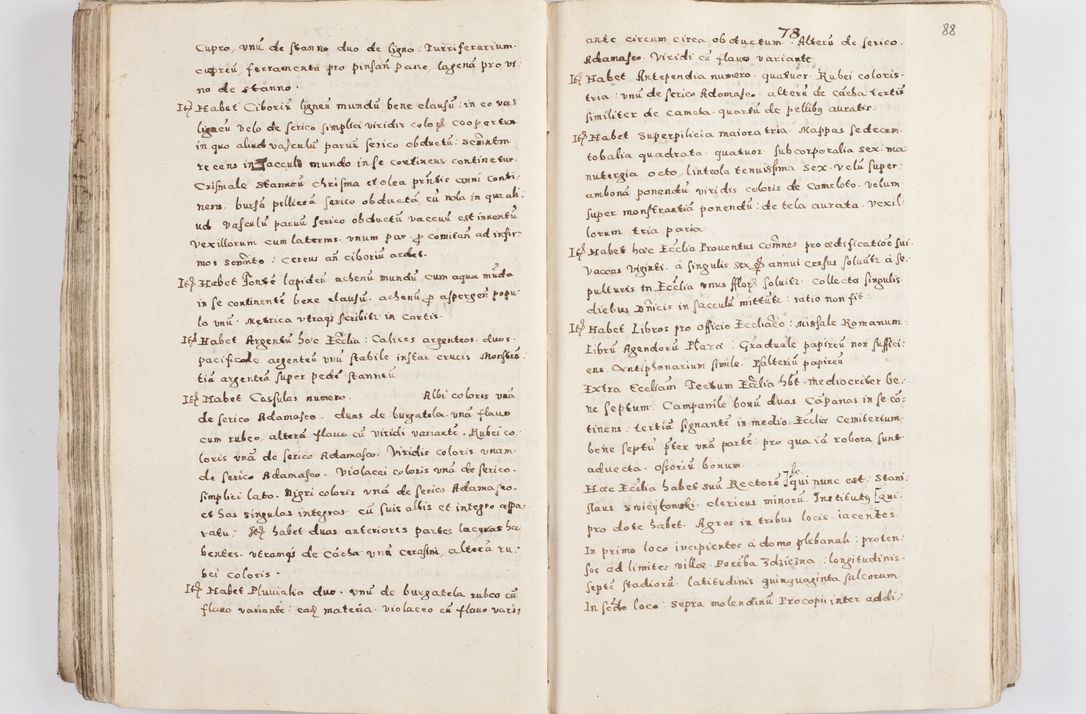 Cupro, vnũ de stanno duo de ligno. Turriferarium
cupreũ, ferramenta pro pinsan̄ pane, lagena pro vi
no de stanno.
Itẽ Habet Ciboriũ ligneũ mundũ bene clausũ: in eo vas
ligneũ velo de serico simplici viridis coloris coopertum
in quo aliud vasculũ paruũ serico obductũ: Scr̃mtm
recens in sacculo mundo in se continens continetur.
Crismale stanneũ Chrisma et olea pr̃ntis anni conti-
nens. bursa pellicea serico obducta, cũ nola in qua ali-
ud vasculũ paruũ serico obductũ vaccuũ est inuentũ
vexillorum cum laternis. vnum par p̱ comitan̄ ad infir-
mos Scr̃mto: Cereus an̄ ciboriũ ardet.
Itẽ Habet Fontẽ lapideũ achenũ mundũ cum aqua mũda
in se continentẽ bene clausũ. achenũ p̱ aspergen̄ popu
lo vnũ. Metrica vtraqȝ scribitr in Cartis
Itẽ Habet Argentũ hæc Ecc̃lia: Calices argenteos. duos.
pacificale argenteũ vnũ stabile instar crucis Monstrã
tiã argenteã super pede stanneũ
Itẽ Habet Casulas numero. Albi coloris vnã
de serico Adamasco. duas de burgatela. vnã flauo
cum rubeo, alterã flauo cũ viridi variantẽ. Rubei co-
loris vnã de serico Adamasco. Viridis coloris vnam.
de serico Adamasco. Violacei coloris vnã de serico.
simplici lato. Nigri coloris vnã de serico Adamasco.
et has singulas integras cũ suis albis et integro appa
ratu. Itẽ habet duas anteriores partes laceras ha
bentes. vtramqȝ de Cacha vnã cerasini, alterã ru-
bei coloris.
Itẽ Habet Pluuialia duo. vnũ de burgatela rubeo cũ
flauo variante: eaq̃ materia. violaceo cũ flauo varĩ
78
88
ante circum circa obductum. Alterũ de serico.
Adamasco. Viridi cũ flauo variante.
Itẽ Habet Antependia numero. quatuor. Rubei coloris.
tria: vnũ de serico Adamasco. alterũ de cacha tertiũ
similiter de cameta. quartũ de pellibȝ auratis.
Itẽ Habet Superpilicia maiora tria. Mappas sedecem.
tobalia quadrata. quatuor. subcorporalia sex. ma
nutergia octo, linteola tenuissima sex. velũ super:
ambonã ponendũ viridis coloris de Cameloto. velum
super monstrantiã ponendũ: de tela aurata. vexil-
lorum tria paria.
Itẽ Habet hæc Ecc̃lia Prouentus com̃nes pro ædificatioẽ sui.
vaccas viginti. à singulis sex gr̃ annui census soluũtr à se-
pulturis in Ecc̃lia vnus fflor soluitr. Collecta singulis
diebus D̃nicis in sacculũ mittũtr: ratio non fit:
Itẽ Habet Libros pro officio Eccliãco: Missale Romanum.
Librũ Agendorũ Plaza: Graduale papireũ nõ suffici-
ens. Antiphonarium simile. Psalteriũ papireũ
Extra Eccliam Tectum Ecc̃lia hbt. mediocriter be-
ne septum. Campanile bonũ duas Cãpanas in se cõ-
tinens. tertiã signantẽ in medio Ecc̃liæ Cemiterium
bene septũ p̃ter vnã partẽ: pro qua iã robora sunt
aduecta. ossoriũ bonum.
Hæc Ecc̃lia habet suũ Rectorẽ qui nunc est. Stani
slaus Swieykowski. clericus minorũ. Institutȝ [qui
pro dote habet. Agros in tribus locis iacentes.
In primo loco incipientes a domo plebanali: proten-
sos ad limites villæ. Porẽba Zdzięzna: longitudinis.
septẽ stadiorũ. latitudinis quinquaginta sulcorum.
In se᷉do loco: supra molendinũ Procopii inter addi: